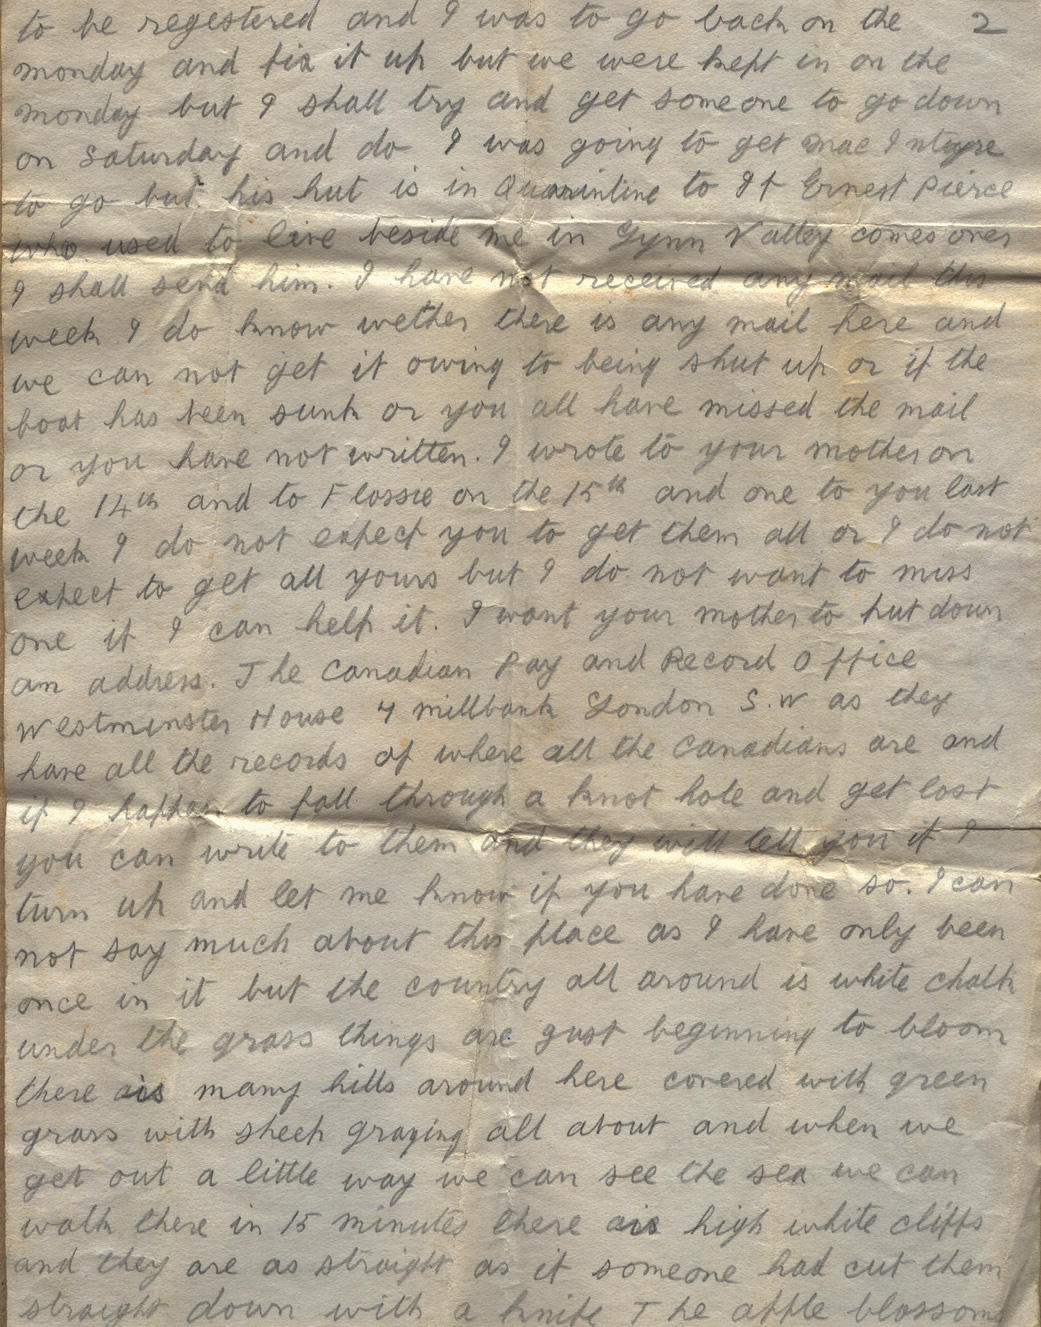 to be regestered and I was to go back on the 2
monday and fix it up but we were kept in on the
monday but I shall try and get someone to go down
on Saturday and do I was going to get mac Intyre
to go but his hut is in Quarintine so If Ernest Pierce
who used to live beside me in Lynn Valley comes over
I shall send him. I have not received any mail this
week I do know wether there is any mail here and
we can not get it owing to being shut up or if the
boat has been sunk or you all have missed the mail
or you have not written. I wrote to your mother on
the 14th and to Flossie on the 15th and one to you last
week I do not expect you to get them all or I do not
expect to get all yours but I do not want to miss
one if I can help it. I want your mother to put down
an address. The Canadian Pay and Record Office
Westminster House 7 millbank London S.W as they
have all the records of where all the Canadians are and
if I happen to fall through a knot hole and get lost
you can write to them and they will tell you if I
turn up and let me know if you have done so. I can
not say much about this place as I have only been
once in it but the country all around is white chalk
under the grass things are just beginning to bloom
there is many hills around here covered with green
grass with sheep grazing all about and when we
get out a little way we can see the sea we can
walk there in 15 minutes there is high white cliffs
and they are as straight as if someone had cut them
straight down with a knife The apple blossoms